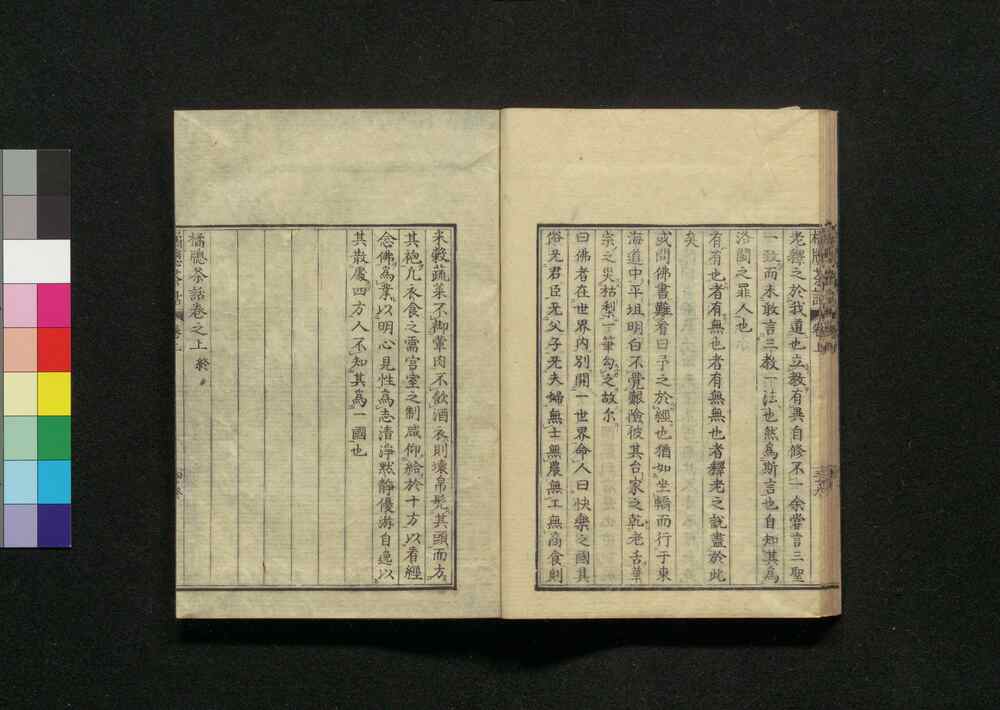 老釋之於我道也立教有異自修不一余嘗言三聖
一致而未敢言三教一法也然為斯言也自知其為
洛閩之罪人也
有有也者有無也者有無無也者釋老之說盡於此
矣
或問佛書難看曰予之於經也猶如坐轎而行于東
海道中平坦明白不覺艱險彼其台家之乾老舌華
宗之臭枯梨一筆勾之故尔
曰佛者在世界内別開一世界命人曰快樂之國其
俗无君臣无父子无夫婦無士無農無工無商食則
米穀蔬菜不御葷肉不飲酒衣則壞帛髡其頭而方
其袍凡衣食之需宮室之制咸仰給於十方以看經
念佛為業以明心見性為志清淨默静優游自逸以
其散處四方人不知其為一國也
橘牕茶話卷之上 終